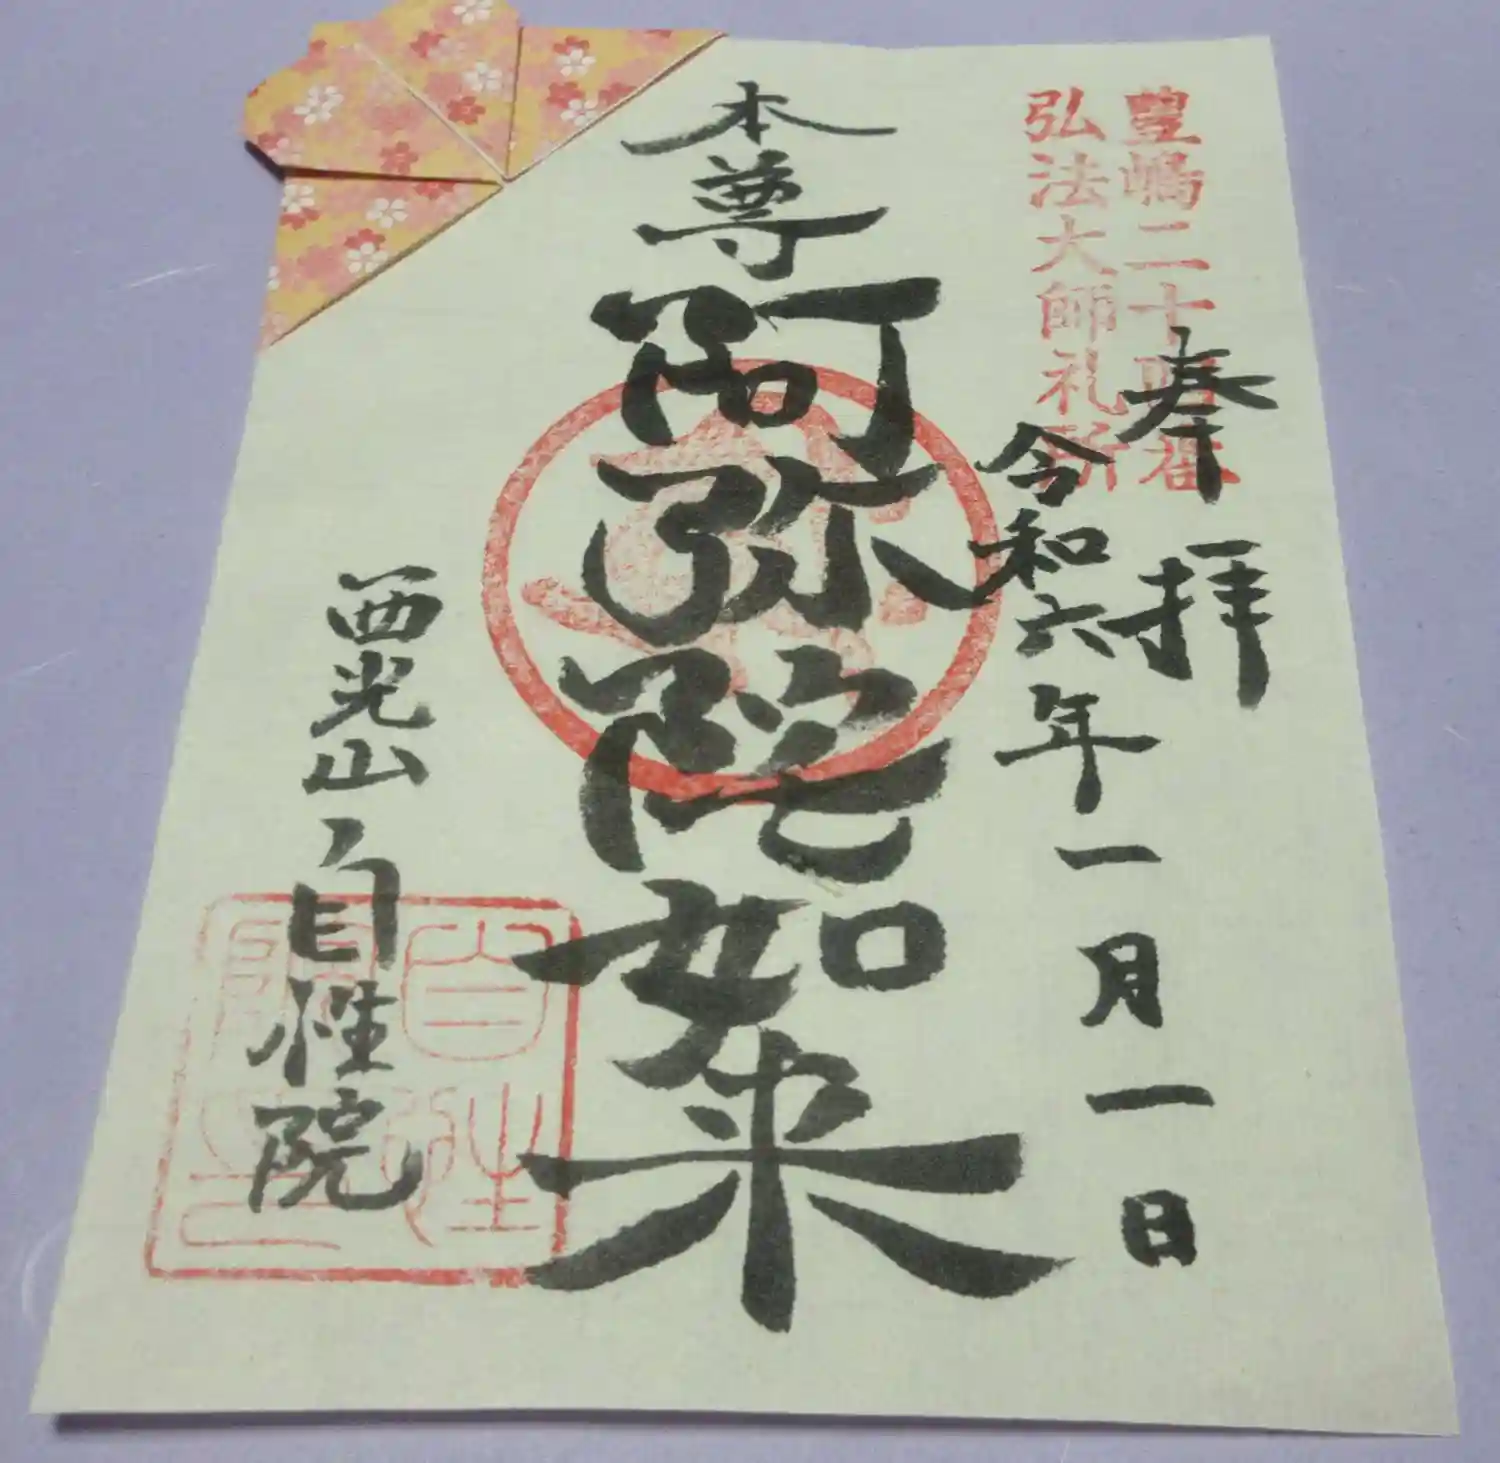 豊嶋二十四番
弘法大師礼所
奉拝
令和六年一月一日
本尊
阿弥陀如来
西光山自性院
自性院